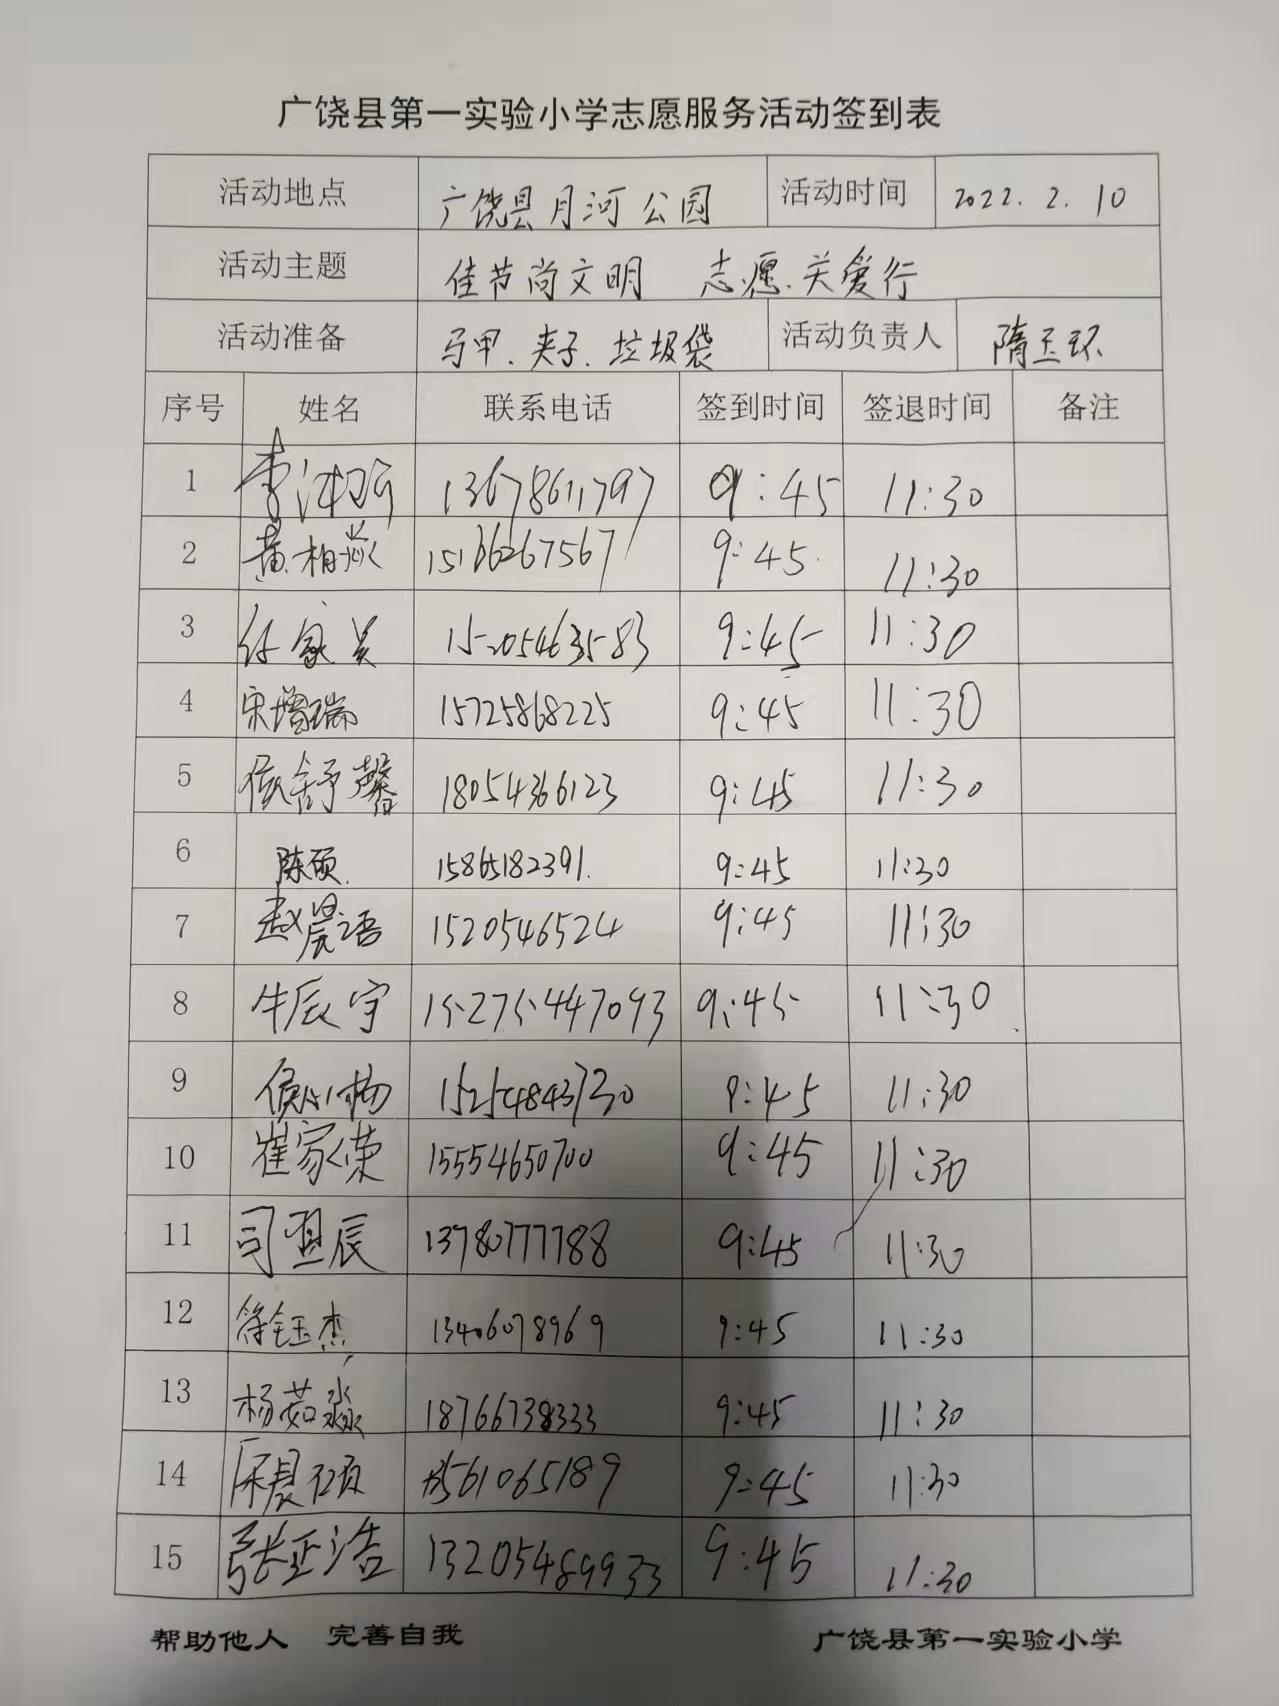 广饶县第一实验小学志愿服务活动签到表
活动地点 广饶县月河公园 活动时间 2022.2.10
活动主题 佳节尚文明 志愿.关爱行
活动准备 马甲.夹子.垃圾袋 活动负责人 隋玉环
序号 姓名 联系电话 签到时间 签退时间 备注
1 13678611797 9:45 11:30
2 15136267567 9:45 11:30
3 15205463583 9:45 11:30
4 宋增瑞 15725868225 9:45 11:30
5 侯舒馨 18054366123 9:45 11:30
6 陈硕 15865182391 9:45 11:30
7 赵晨语 1520546524 9:45 11:30
8 牛辰宇 15275447093 9:45 11:30
9 15254843730 9:45 11:30
10 崔家荣 15554650700 9:45 11:30
11 13780777788 9:45 11:30
12 徐钰杰 13406078969 9:45 11:30
13 杨茹淼 18766738333 9:45 11:30
14 9:45 11:30
15 张正浩 13205489933 9:45 11:30
帮助他人 完善自我 广饶县第一实验小学